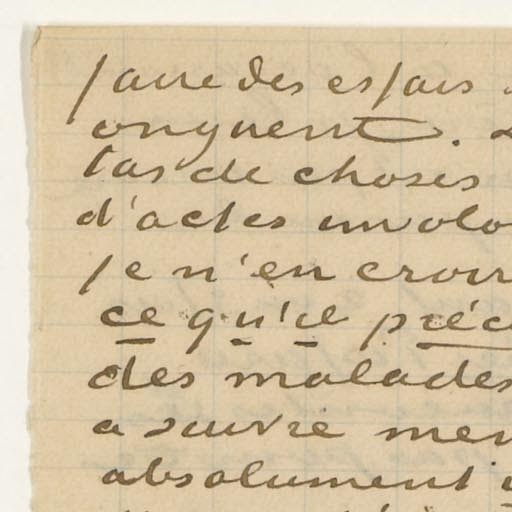 faire des essais
onguent.
tas de choses
d'actes involo
je n'en croir
ce qu'il préc
des malades
a suivre men
absolument